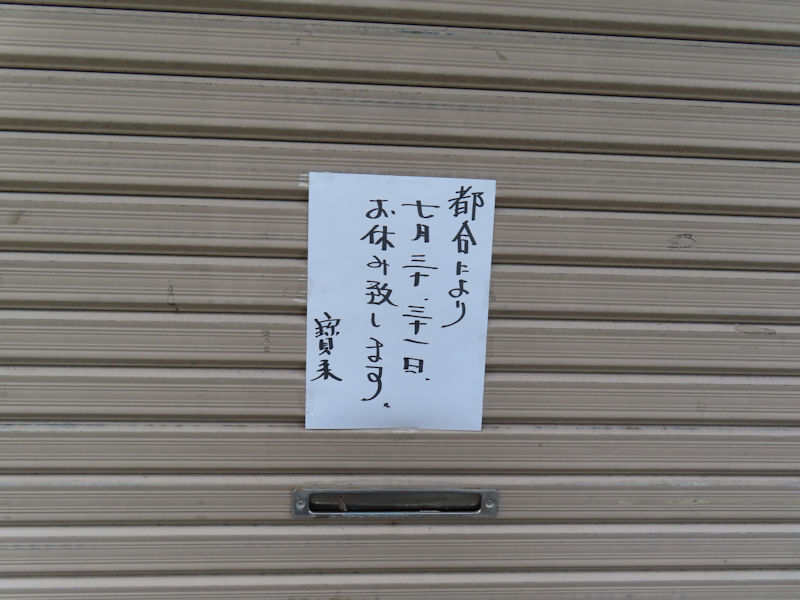 都合により
七月三十、三十一日、
お休み致します。
寳来